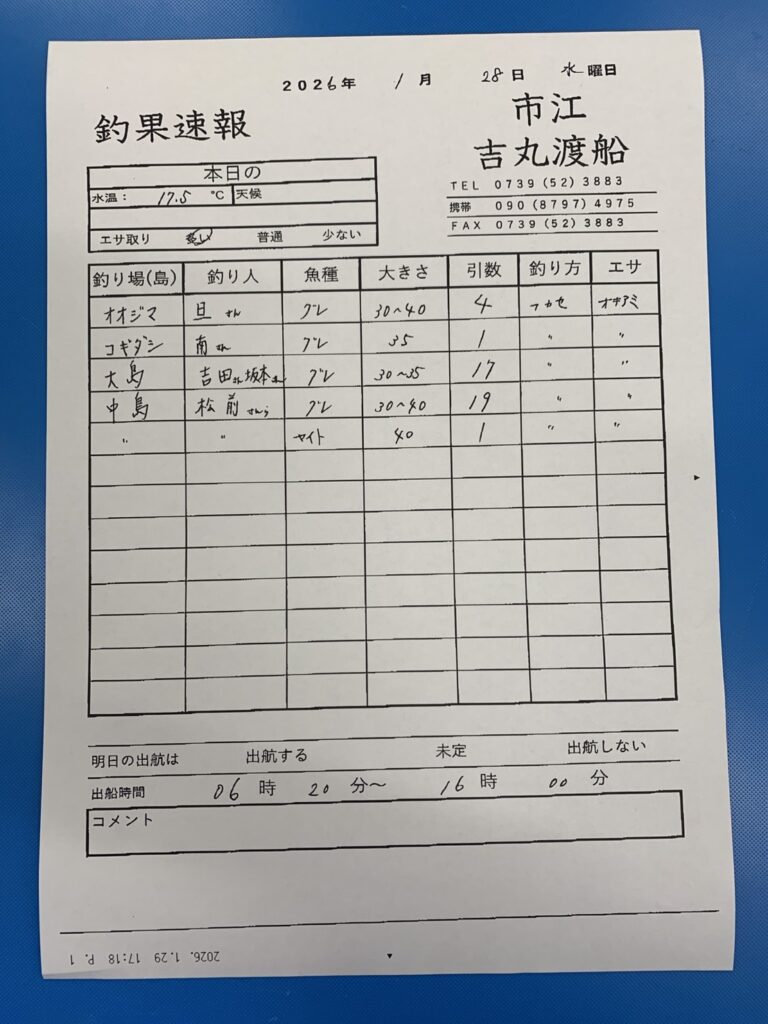 2026年 1月 28日 水曜日
釣果速報
市江
吉丸渡船
TEL 0739(52)3883
携帯 090(8797)4975
FAX 0739(52)3883
本日の
水温: 17.5 ℃ 天候
エサ取り 多い 普通 少ない
釣り場(島) 釣り人 魚種 大きさ 引数 釣り方 エサ
オオジマ 旦さん グレ 30〜40 4 フカセ オキアミ
コギダシ 南さん グレ 35 1 〃 〃
大島 吉田さん坂本さん グレ 30〜35 17 〃 〃
中島 松前さんら グレ 30〜40 19 〃 〃
〃 〃 サイト 40 1 〃 〃
明日の出航は 出航する 未定 出航しない
出船時間 06時 20分〜 16時 00分
コメント
2026. 1.29 17:18 P. 1